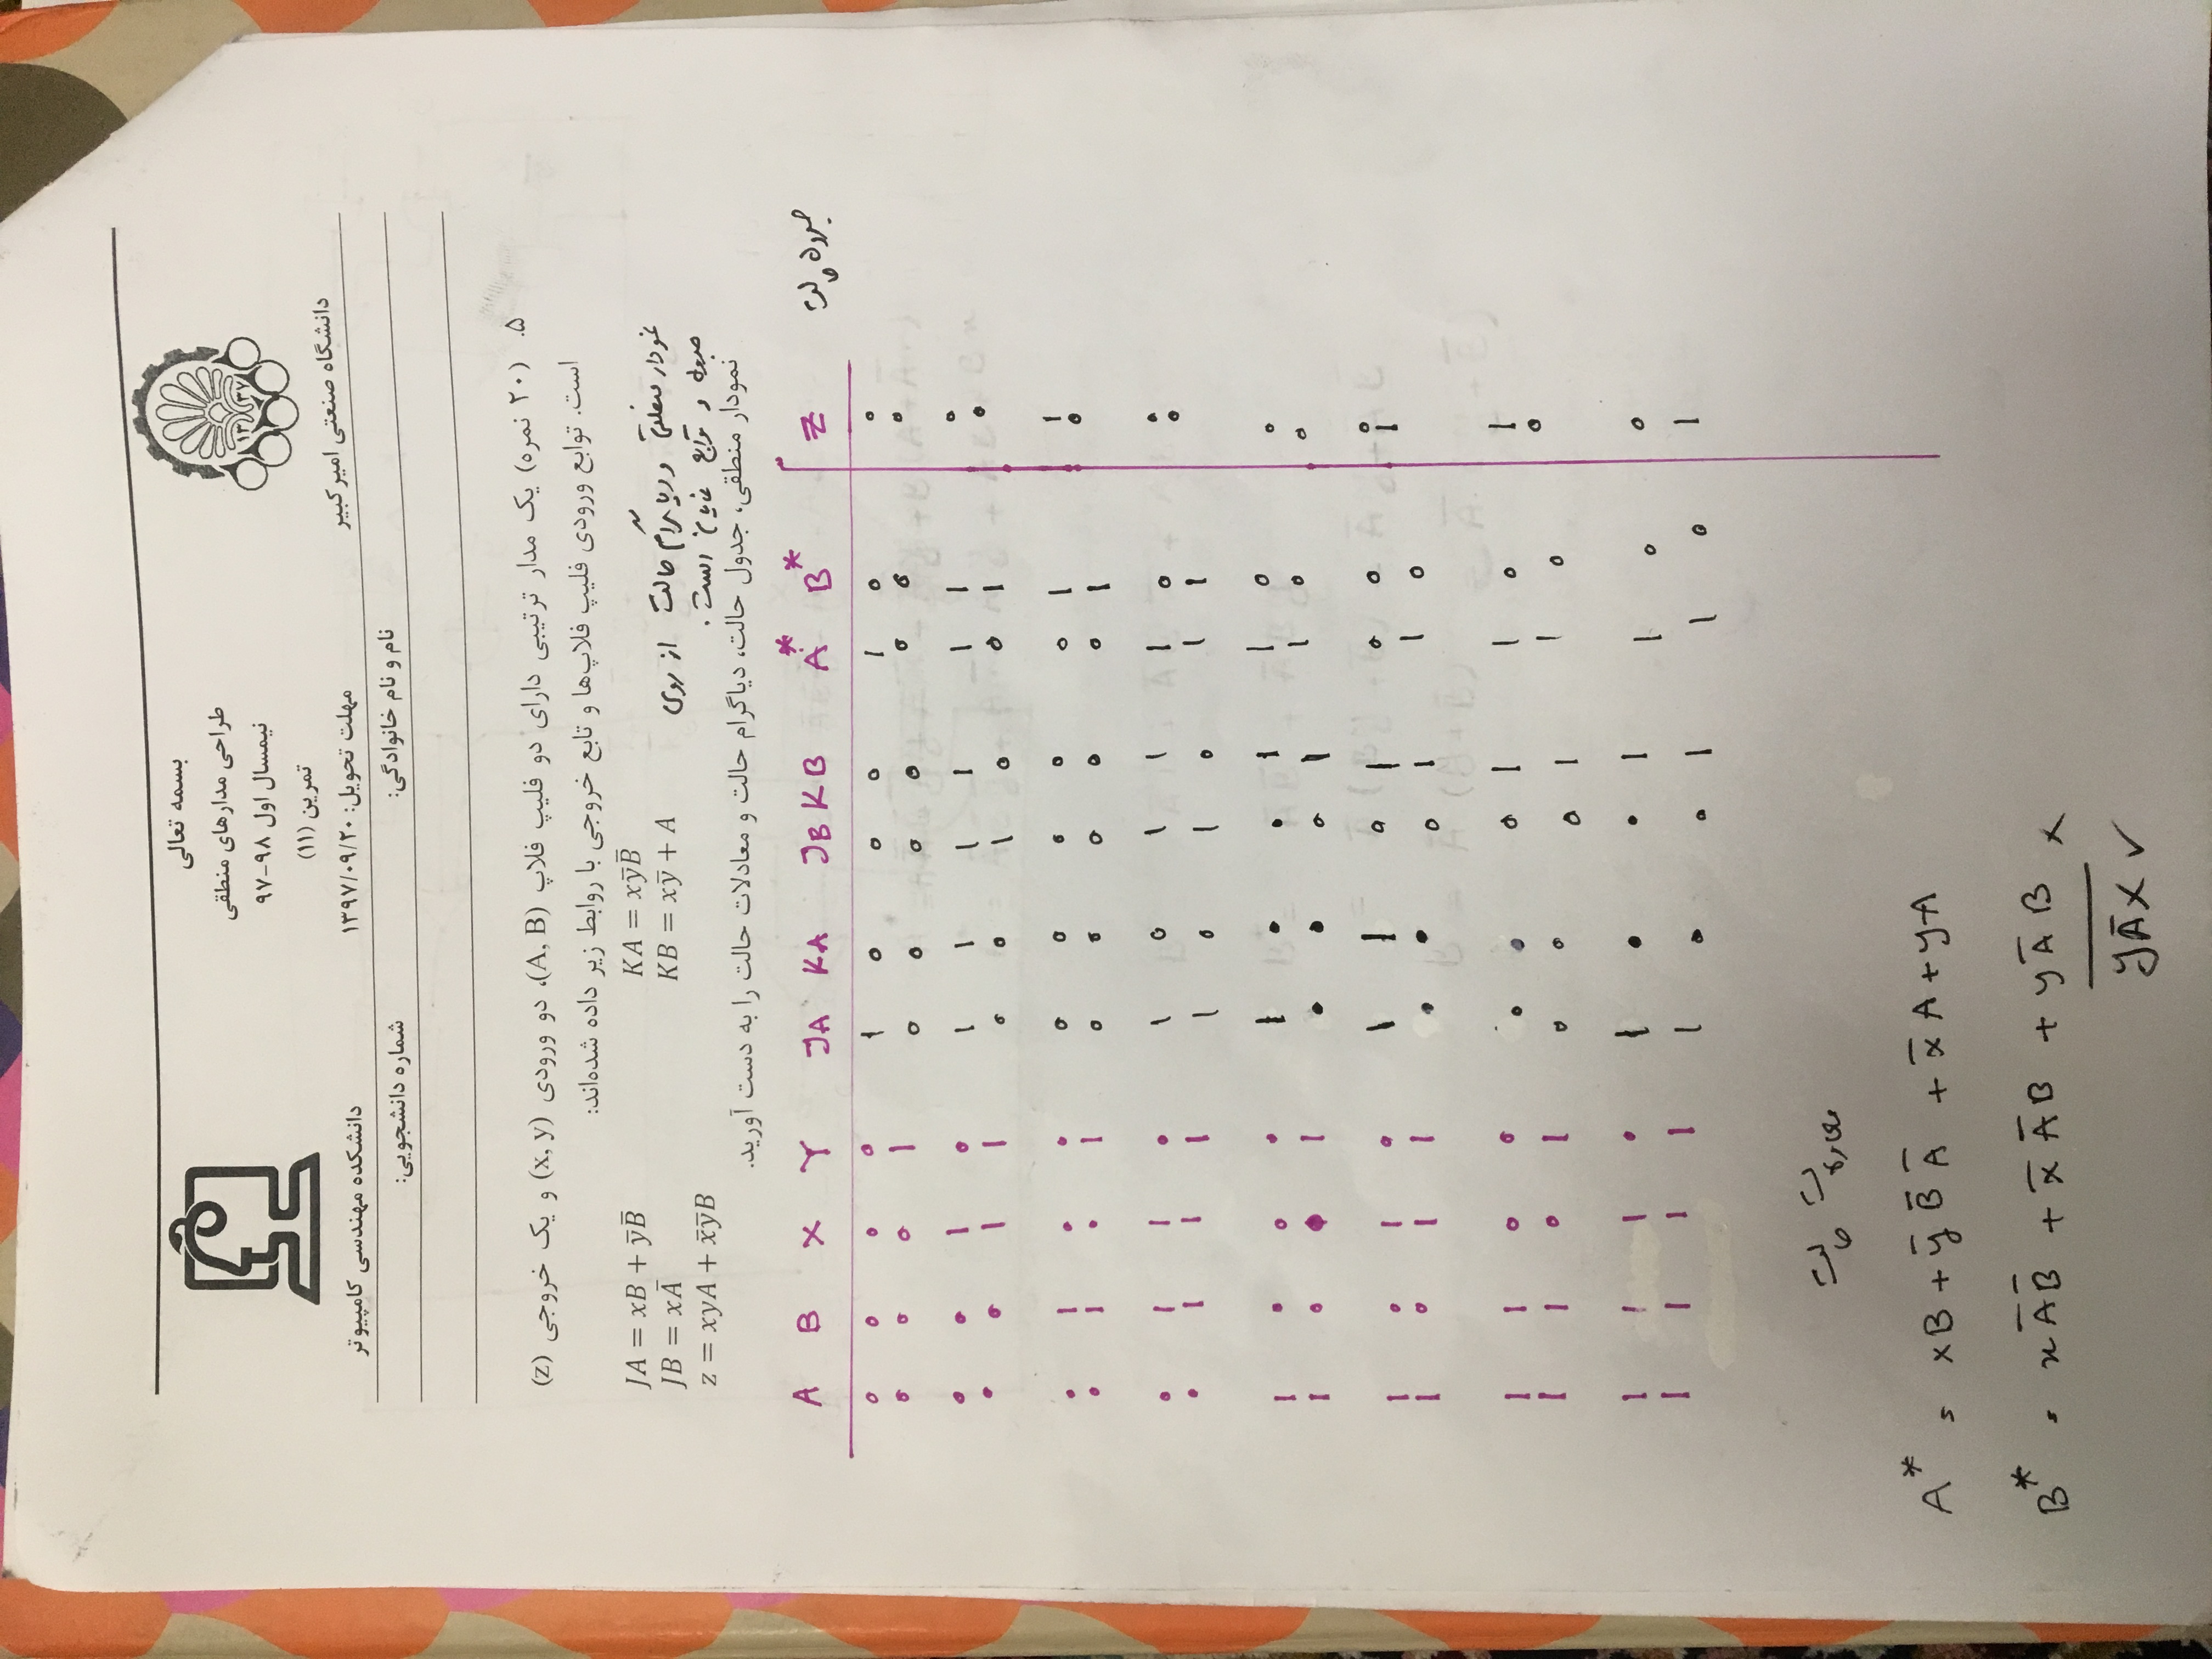 بسمه تعالی
طراحی مدارهای منطقی
نیمسال اول ۹۸-۹۷
تمرین (۱۱)
مهلت تحویل: ۱۳۹۷/۰۹/۲۰
۱۳ ۳۷
دانشگاه صنعتی امیرکبیر
دانشکده مهندسی کامپیوتر
نام و نام خانوادگی: شماره دانشجویی:
۵. (۲۰ نمره) یک مدار ترتیبی دارای دو فلیپ فلاپ (A, B)، دو ورودی (x, y) و یک خروجی (z)
است. توابع ورودی فلیپ فلاپ‌ها و تابع خروجی با روابط زیر داده شده‌اند:
JA = xB + y̅B̅ KA = xy̅B̅
JB = xA̅ KB = xy̅ + A
z = xyA + x̅y̅B
نمودار منطقی و دیاگرام حالت از روی
جدول و توابع نمایان است.
نمودار منطقی، جدول حالت، دیاگرام حالت و معادلات حالت را به دست آورید.
جدول حالت
A B X Y JA KA JB KB A* B* Z
0 0 0 0 1 0 0 0 1 0 0
0 0 0 1 0 0 0 0 0 0 0
0 0 1 0 1 1 1 1 1 1 0
0 0 1 1 0 0 1 0 0 1 0
0 1 0 0 0 0 0 0 0 1 1
0 1 0 1 0 0 0 0 0 1 0
0 1 1 0 1 0 1 1 1 0 0
0 1 1 1 1 0 1 0 1 1 0
1 0 0 0 1 0 0 1 1 0 0
1 0 0 1 0 0 0 1 1 0 0
1 0 1 0 1 1 0 1 0 0 0
1 0 1 1 0 0 0 1 1 0 1
1 1 0 0 0 0 0 1 1 0 1
1 1 0 1 0 0 0 1 1 0 0
1 1 1 0 1 0 0 1 1 0 0
1 1 1 1 1 0 0 1 1 0 1
معادلات حالت
A* = xB + y̅ B̅ A̅ + x̅ A + yA
B* = xA̅B̅ + x̅ A̅B + yA̅B ×
yA̅x ✓